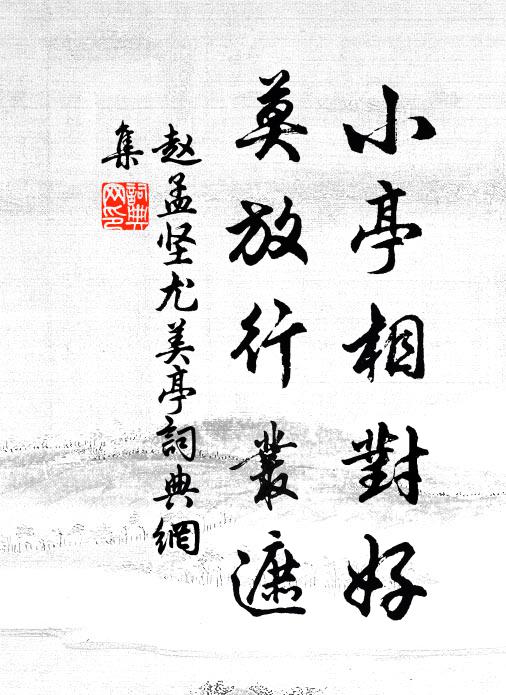 小亭相對好
莫放行叢遮
赵孟坚尤美亭詞典網
集
詞典
网印